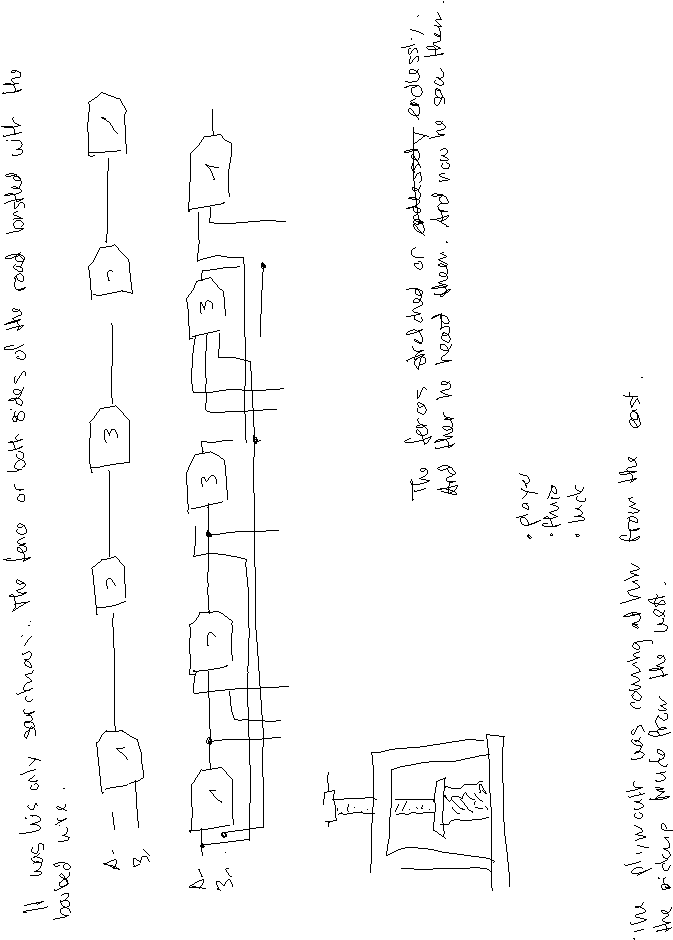 It was his only sanctuary. The fence or both sides of the road bristled with the
barbed wire.
1
2
3
2
1
A
B
1
2
3
3
1
A
B
The fences stretched or endlessly endlessly.
And then he heard them. And now he saw them.
• player
• thuio
• luck
• The plymouth was coming at him from the east.
the pickup truck from the west.